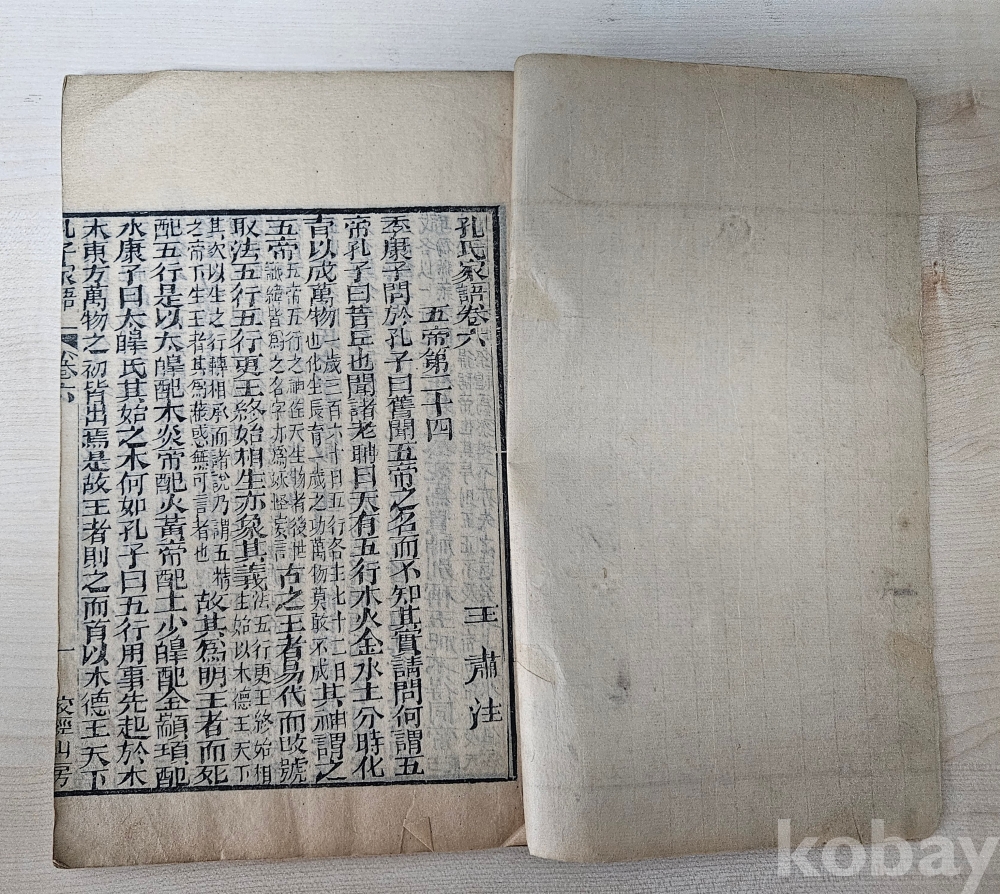 孔氏家語卷六 王肅注
五帝第二十四
季康子問於孔子曰舊聞五帝之名而不知其實請問何謂五
帝孔子曰昔丘也聞諸老聃曰天有五行木火金水土分時化
育以成萬物一歲三百六十日五行各生七十二日也化生長育一歲之功萬物莫敢不成其神謂之
五帝五帝五行之神佐天生物者後世讖緯皆爲之名字亦爲妖怪妄言古之王者易代而改號
取法五行五行更王終始相生亦象其義法五行更王終始相生始以木德王天下
其次以生之行轉相承而諸說乃謂五精之帝下生王者其爲蔽惑無可言者也故其爲明王者而死
配五行是以太皞配木炎帝配火黃帝配土少皞配金顓頊配
水康子曰太皞氏其始之木何如孔子曰五行用事先起於木
木東方萬物之初皆出焉是故王者則之而首以木德王天下
孔子家語 卷六 一 校經山房
kobay